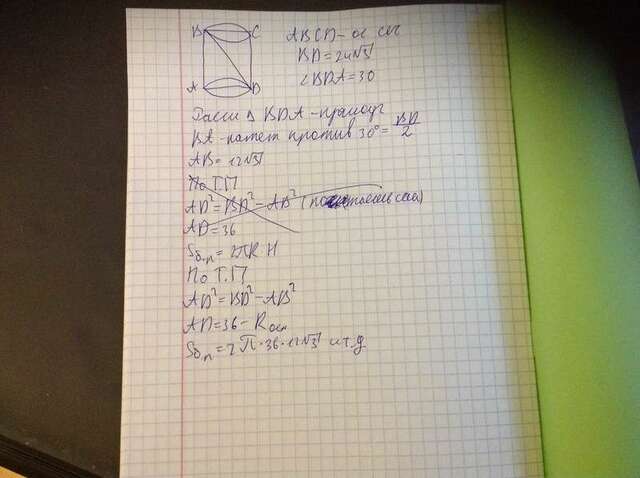 B C
A D
ABCD - ос сеч
BD=24√3
∠BDA=30
Рассм △ BDA - прямоуг
BA - катет против 30°= BD/2
AB= 12√3
По Т.П
AD²=BD²-AB²
AD=36
Sб.п=2πRH
По Т.П
AD²=BD²-AB²
AD=36- Rосн
Sбп=2π·36·12√3 и т.д